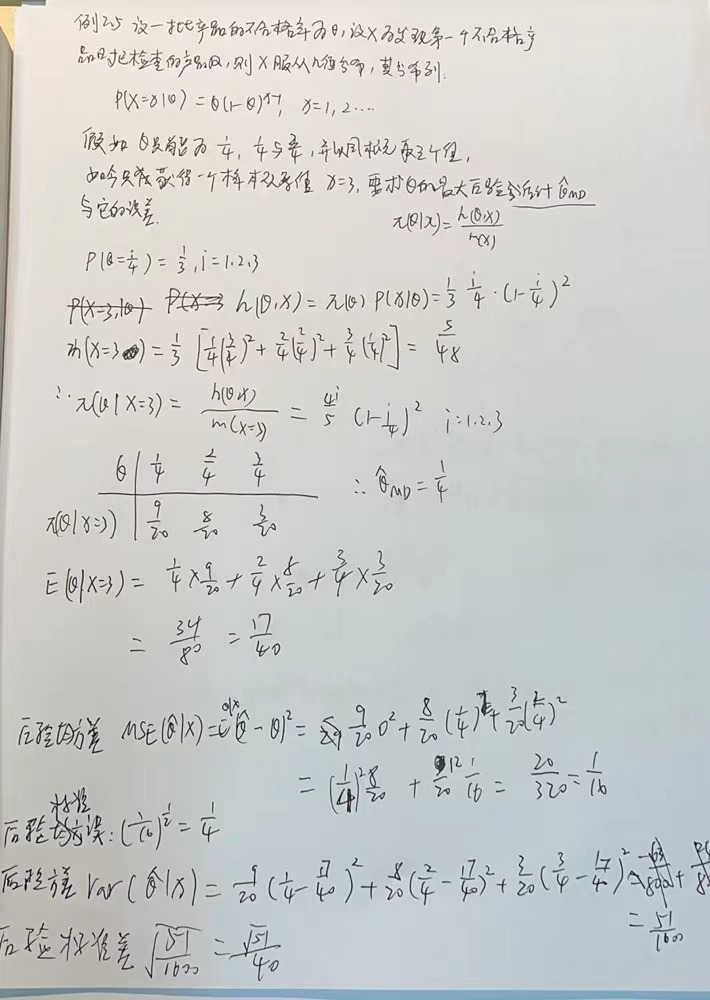 例2.5 设一批产品的不合格率为θ,设X为发现第一个不合格产
品时已检查的产品数,则X服从几何分布,其分布列:
P(X=x|θ) = θ(1-θ)^{x-1}, x=1,2....
假如θ只能为 1/4, 2/4与3/4,并以同概率取三个值,
如今只获得一个样本观察值 x=3,要求θ的最大后验估计 θ̂_MD
与它的误差.
π(θ|x) = h(θ,x)/m(x)
P(θ=i/4) = 1/3, i=1.2.3
h(θ,x) = π(θ) P(x|θ) = 1/3 i/4 · (1-i/4)^2
m(x=3) = 1/3 [1/4(3/4)^2 + 2/4(2/4)^2 + 3/4(1/4)^2] = 5/48
∴ π(θ|X=3) = h(θ,x)/m(x=3) = 4i/5 (1-i/4)^2 i=1.2.3
θ | 1/4 2/4 3/4
∴ θ̂_MD = 1/4
π(θ|x=3) | 9/20 8/20 3/20
E(θ|X=3) = 1/4 × 9/20 + 2/4 × 8/20 + 3/4 × 3/20
= 34/80 = 17/40
后验均方差 MSE(θ̂|X) = E^{θ|x}(θ̂-θ)^2 = 9/20 0^2 + 8/20 (1/4)^2 + 3/20 (2/4)^2
= (1/4)^2 8/20 + 12/20 1/16 = 20/320 = 1/16
标准
后验误: (1/16)^{1/2} = 1/4
后验方差 Var(θ̂|x) = 9/20 (1/4 - 17/40)^2 + 8/20 (2/4 - 17/40)^2 + 3/20 (3/4 - 17/40)^2
= 51/1600
后验标准差 √(51/1600) = √51/40